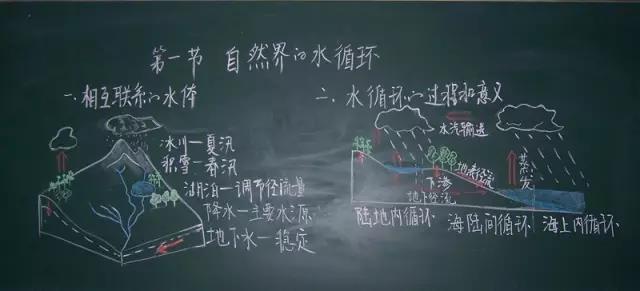 第一节 自然界的水循环
一、相互联系的水体
冰川—夏汛
积雪—春汛
湖泊—调节径流量
降水—主要水源
地下水—稳定
二、水循环的过程和意义
水汽输送
地表径流
下渗
地下径流
蒸发
陆地内循环 海陆间循环 海上内循环